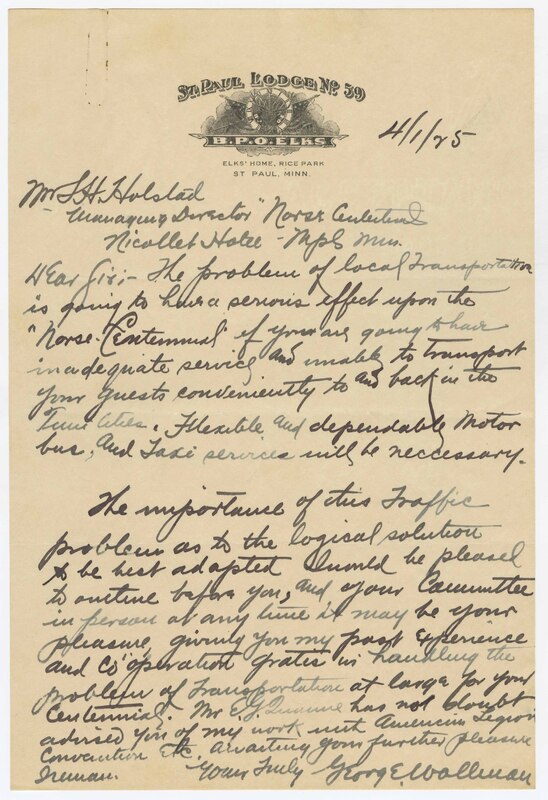 ST. PAUL LODGE No 59
B.P.O. ELKS
ELKS' HOME, RICE PARK
ST PAUL, MINN.
4/1/25
Mr S.H. Holstad
Managing Director "Norse Centennial
Nicollet Hotel - Mpls Minn.
Dear Sir:- The problem of local Transportation
is going to have a serious effect upon the
"Norse-Centennial" if you are going to have
inadequate service and unable to transport
your guests conveniently to and back in the
Twin Cities. Flexible and dependable Motor
bus, and Taxi services will be neccessary.
The importance of this Traffic
problem as to the logical solution
to be best adapted I would be pleased
to outline before you, and your Committee
in person at any time it may be your
pleasure, giving you my past experience
and co'operation gratis in handling the
problem of Transportation at large for your
Centennial. Mr E.G. has not doubt
advised you of my work with American Legion
Convention Etc. Awaiting your further pleasure
I reman. Yours Truly George E. Wallman